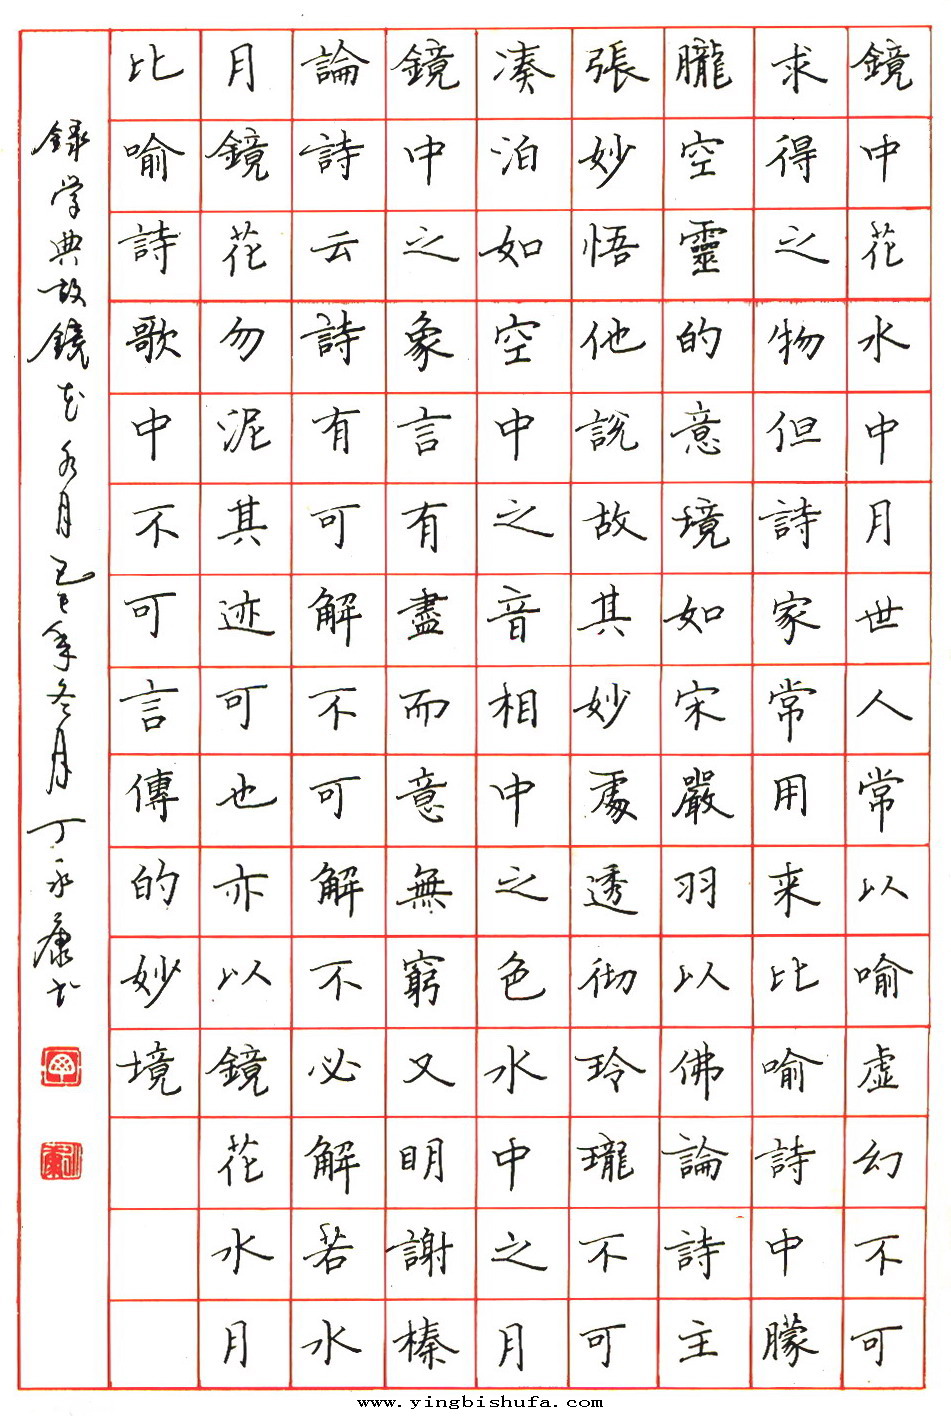 鏡中花水中月世人常以喻虚幻不可
求得之物但詩家常用来比喻詩中朦
朧空靈的意境如宋嚴羽以佛論詩主
張妙悟他説故其妙處透彻玲瓏不可
凑泊如空中之音相中之色水中之月
鏡中之象言有盡而意無窮又明謝榛
論詩云詩有可解不可解不必解若水
月鏡花勿泥其迹可也亦以鏡花水月
比喻詩歌中不可言傳的妙境
録掌典故鏡花水月己巳年冬月丁永康书
www.yingbishufa.com